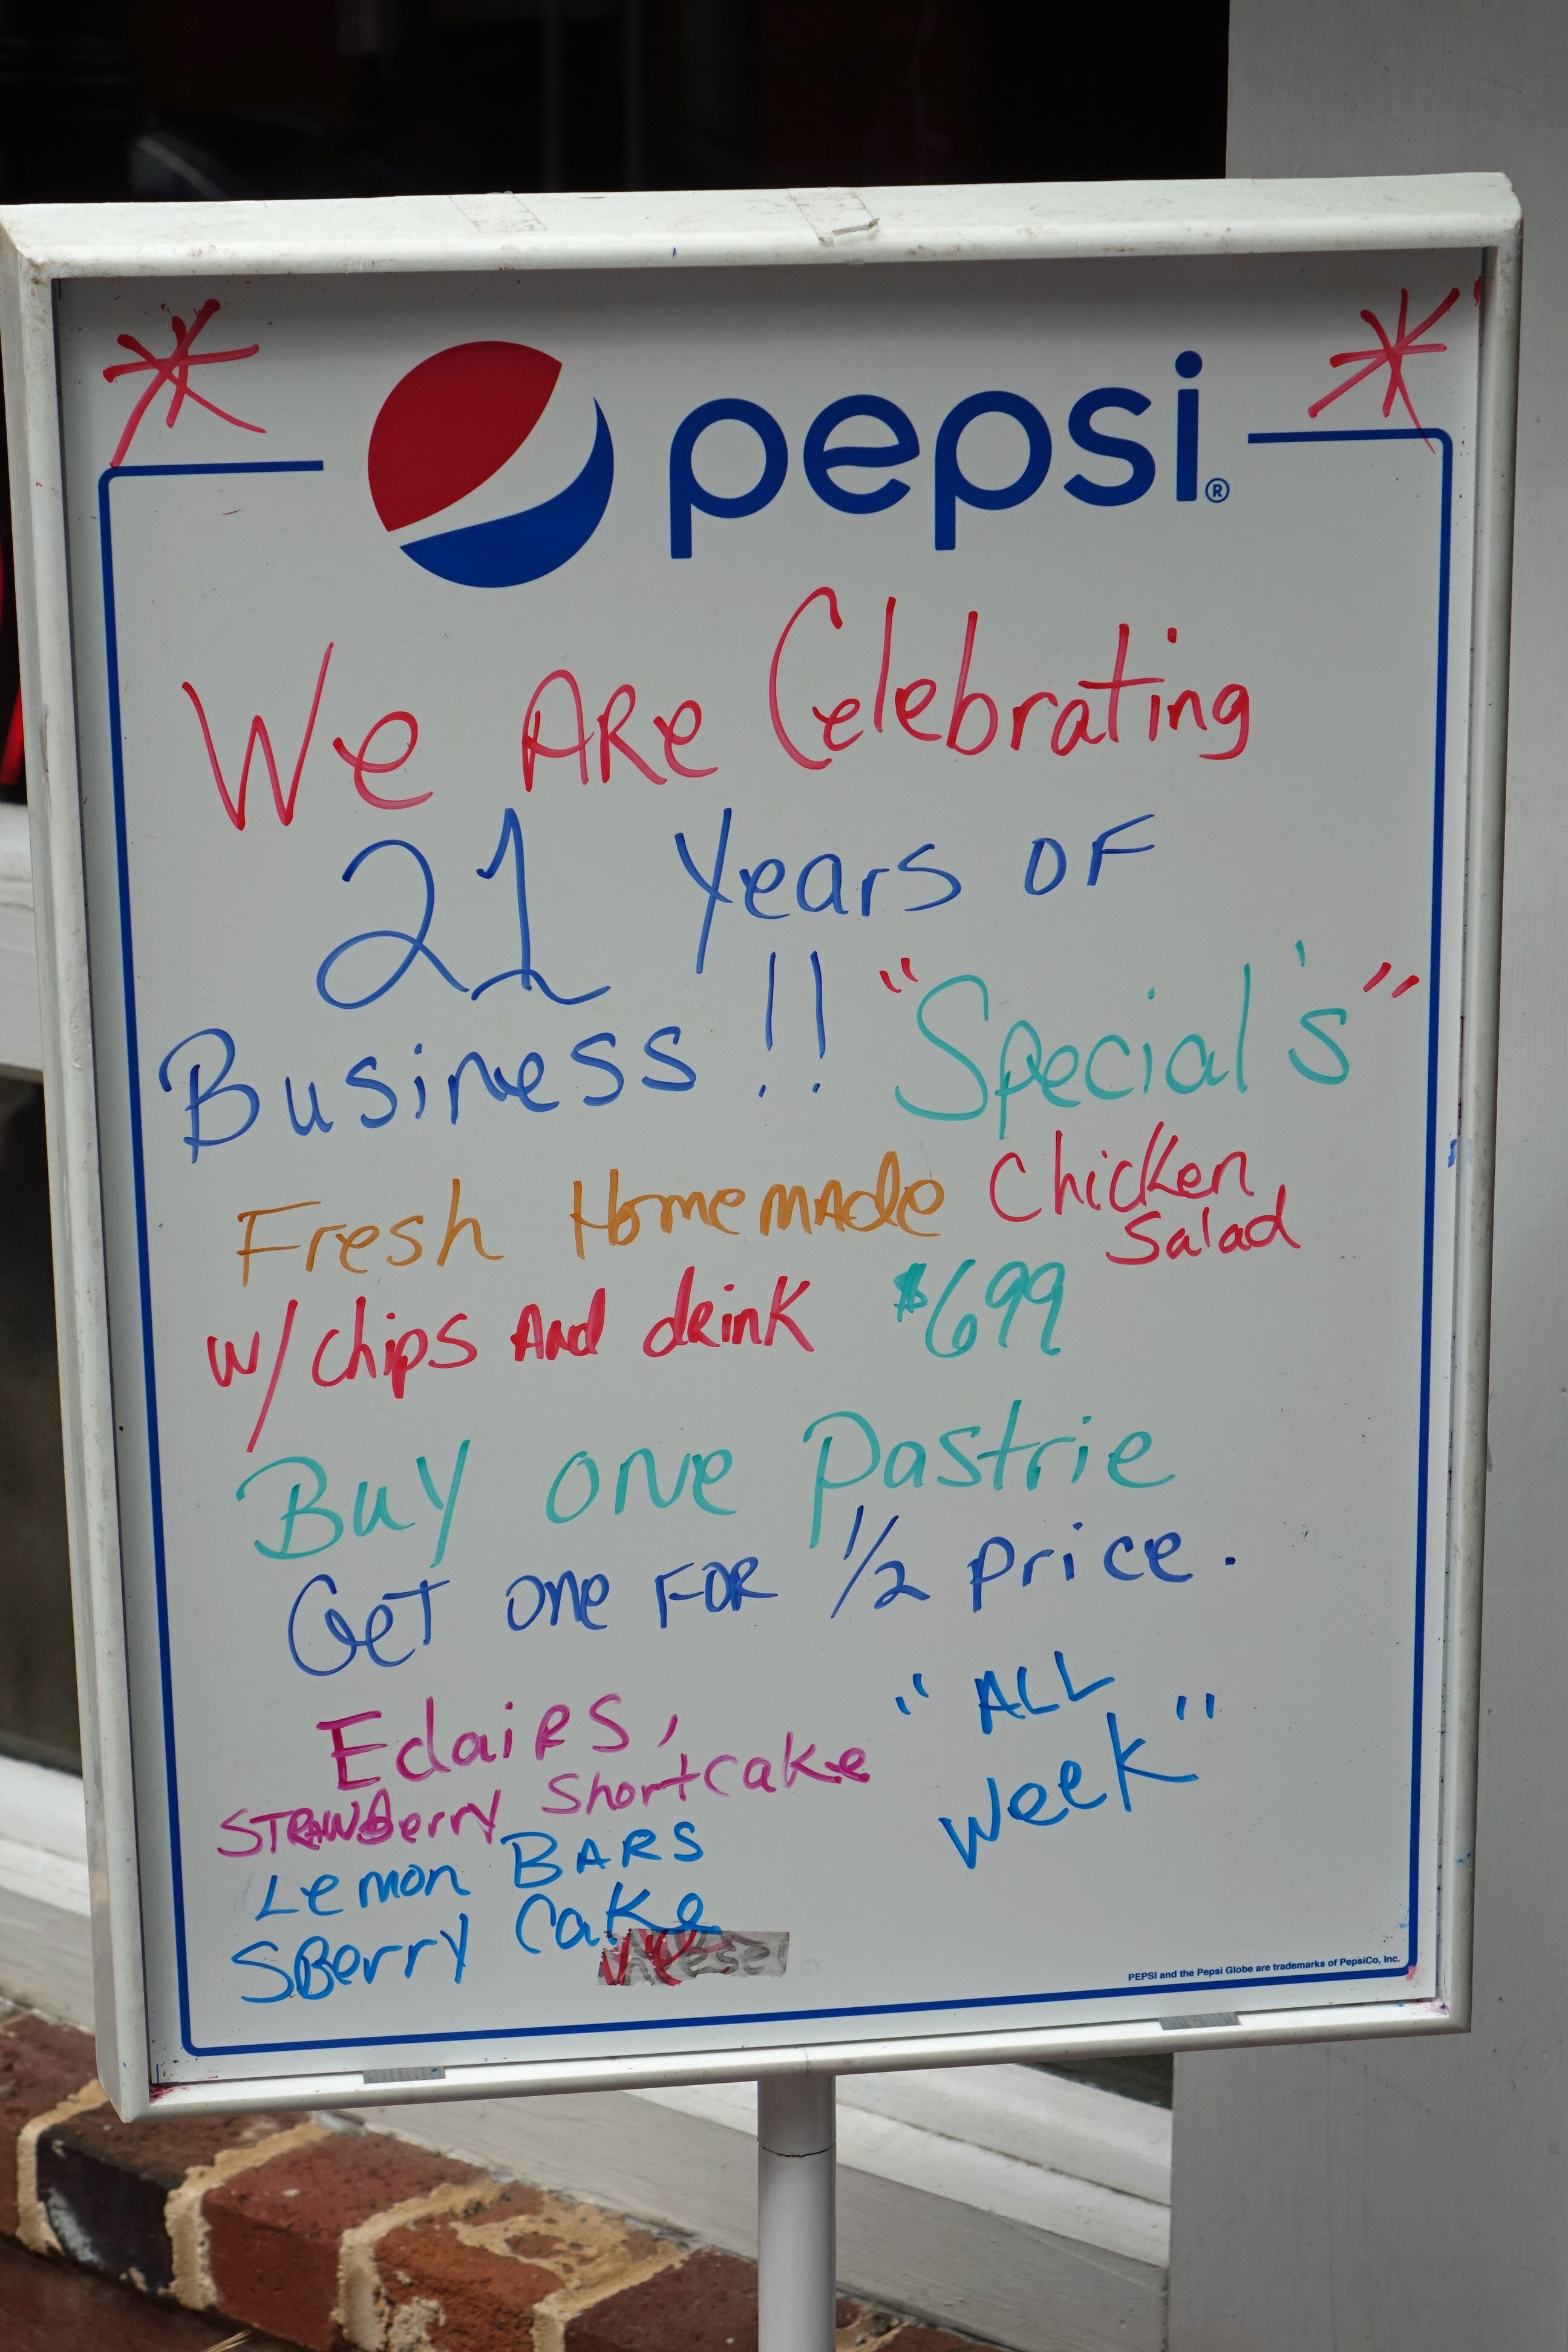 pepsi®
We ARe Celebrating
21 Years OF
Business!! "Special's"
Fresh HomemAde Chicken
Salad
w/chips And drink $6 99
Buy one pastrie
Get one FOR 1/2 price.
Eclairs,
"ALL
STRAWBerry Shortcake
week"
Lemon BARS
SBerry Cake
PEPSI and the Pepsi Globe are trademarks of PepsiCo, Inc.